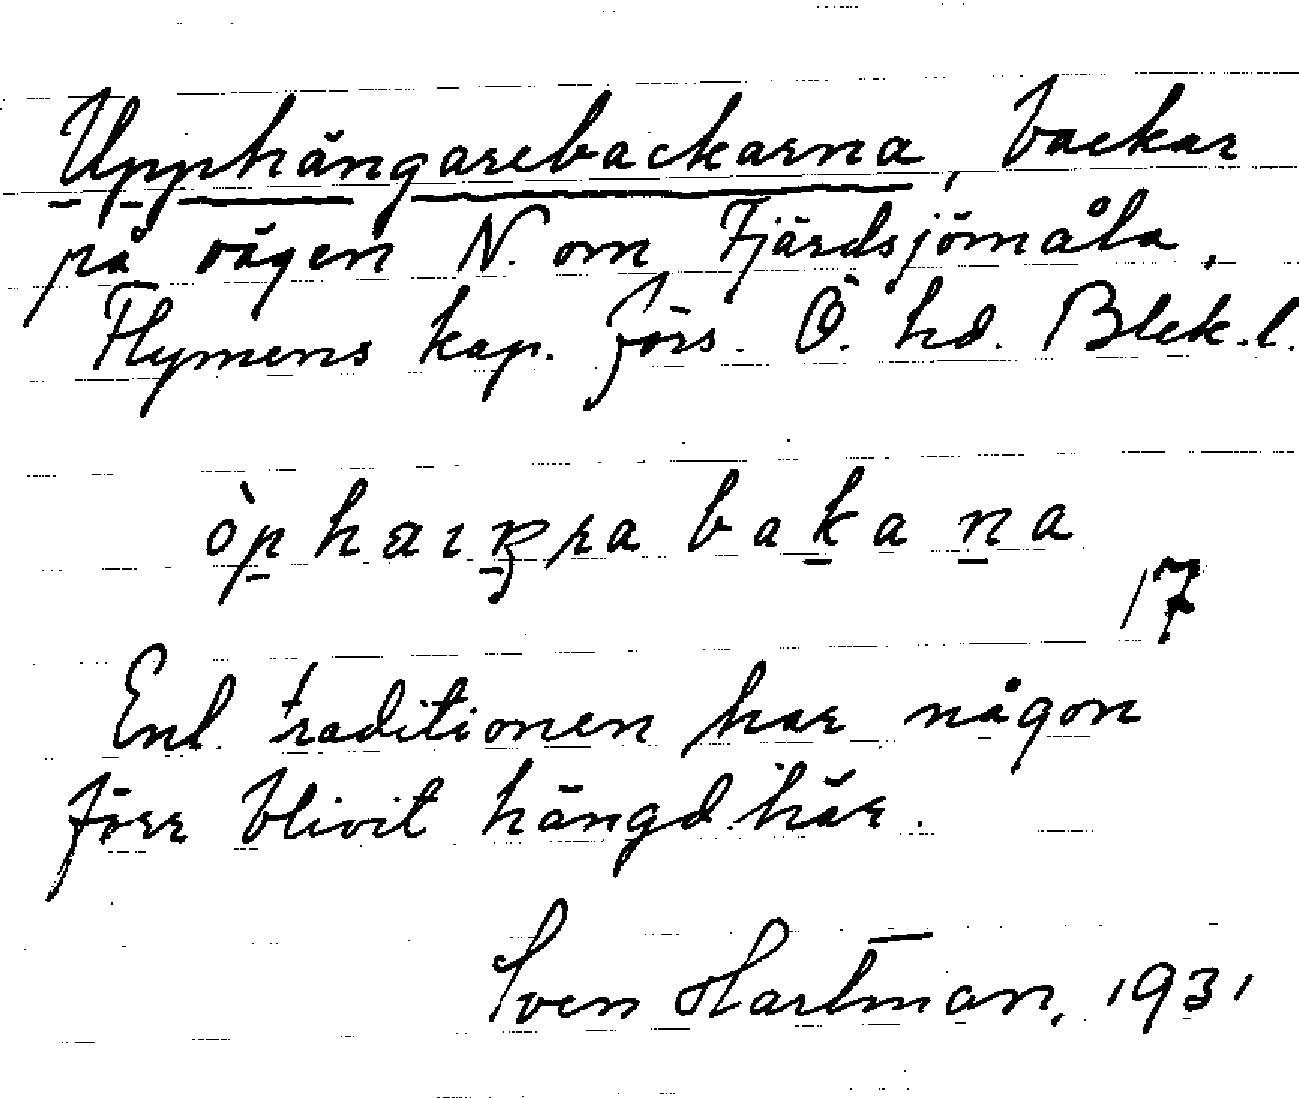 Upphängarebackarna, backar
på vägen N. om Fjärdsjömåla,
Flymens kap. förs. Ö. hd. Blek.l.
òp haıŋra bakana
17
Enl. traditionen har någon
förr blivit hängd här.
Sven Hartman, 1931